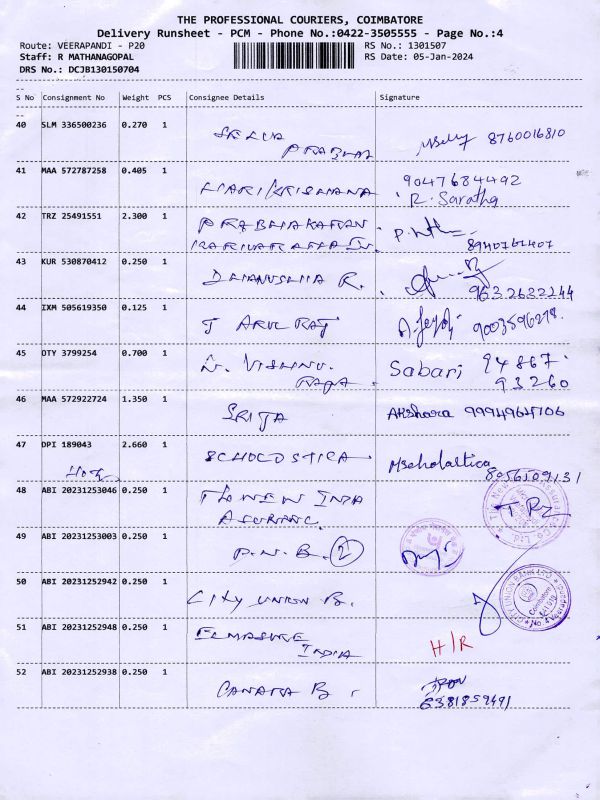 THE PROFESSIONAL COURIERS, COIMBATORE
Delivery Runsheet - PCM - Phone No.:0422-3505555 - Page No.:4
Route: VEERAPANDI - P20
RS No.: 1301507
Staff: R MATHANAGOPAL
RS Date: 05-Jan-2024
DRS No.: DCJB130150704
S No Consignment No Weight PCS Consignee Details Signature
40 SLM 336500236 0.270 1 SELVA
PRABHU 8760016810
41 MAA 572787258 0.405 1 HARI KRISHANA 9047684492
R. Saratha
42 TRZ 25491551 2.300 1 PRABHAKARAN
8940761407
43 KUR 530870412 0.250 1 DHANUSHIA R. 9632632244
44 IXM 505619350 0.125 1 J ARUL RAJ 9003596278.
45 OTY 3799254 0.700 1 N. VISHNU Sabari 94867
RAJA 93260
46 MAA 572922724 1.350 1 SRIJA Akshara
47 DPI 189043 2.660 1 SCHOLOSTICA Mscholastica
8056509131
48 ABI 20231253046 0.250 1 THE NEW INDIA
ASURANC.
49 ABI 20231253003 0.250 1 P.N.B. 2
50 ABI 20231252942 0.250 1 CITY UNION B.
CITY UNION BANK LTD
Coimbatore
51 ABI 20231252948 0.250 1 INDIA H/R
52 ABI 20231252938 0.250 1 CANARA B.
6381859491